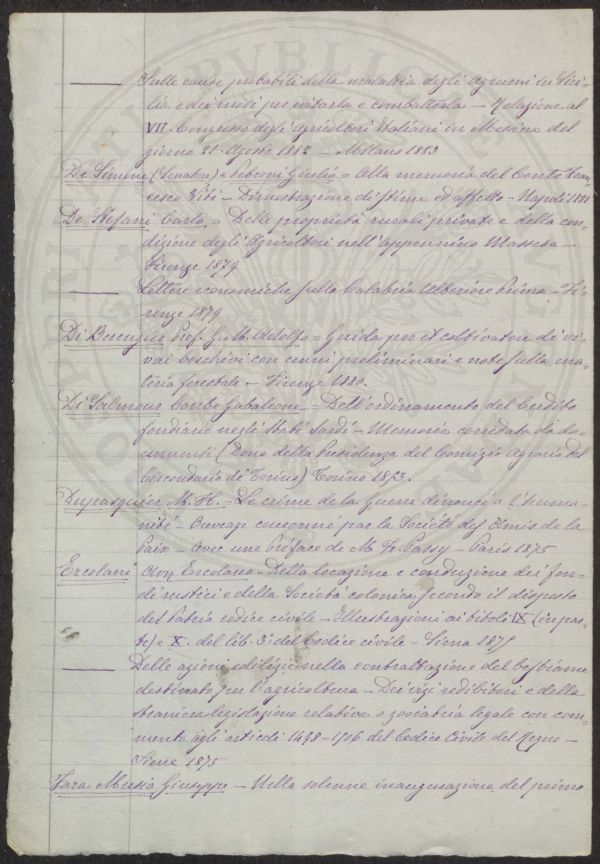 ——— Sulle cause probabili della malattia degli agrumi in Sici-
lia e dei modi per evitarla e combatterla – Relazione al
VII Congresso degli Agricoltori Italiani in Messina del
giorno 21 Agosto 1882 – Milano 1883
De Simone (Senatore) e Giulio = Alla memoria del Conte Fran-
cesco Viti – Dimostrazione di stima ed affetto – Napoli 1881
De Stefani Carlo = Delle proprietà rurali private e della con-
dizione degli Agricoltori nell'Appennino Massese –
Firenze 1879
——— Lettere economiche sulla Calabria Ulteriore Prima – Fi-
renze 1879
Di Berenger Prof. G. M. Adolfo = Guida per il coltivatore di vi-
vai boschivi con cenni preliminari e note sulla ma-
teria forestale – Firenze 1880.
Di Salmour Conte Gabaleone = Dell'ordinamento del Credito
fondiario negli Stati Sardi – Memoria corredata da do-
cumenti (Dono della Presidenza del Comizio Agrario del
Circondario di Torino) Torino 1853.
Dupasquier M. H. – Le crime de la Guerre dénoncé à l'huma-
nité – Ouvrage couronné par la Société des Amis de la
Paix – avec une Préface de M. F. Passy – Paris 1875
Ercolani Avv Ercolano – Della locazione e conduzione dei fon-
di rustici e della Società colonica secondo il disposto
del Patrio codice civile – Illustrazioni ai titoli IX (in par-
te) e X. del lib. 3º del Codice civile – Siena 1875
——— Delle azioni edilizie nella contrattazione del bestiame
destinato per l'agricoltura – Dei vizi redibitori e della
straniera legislazione relativa o zooiatria legale con com-
mento agli articoli 1498–1506 del Codice Civile del Regno –
Siena 1875
Fara Musio Giuseppe – Nella solenne inaugurazione del primo